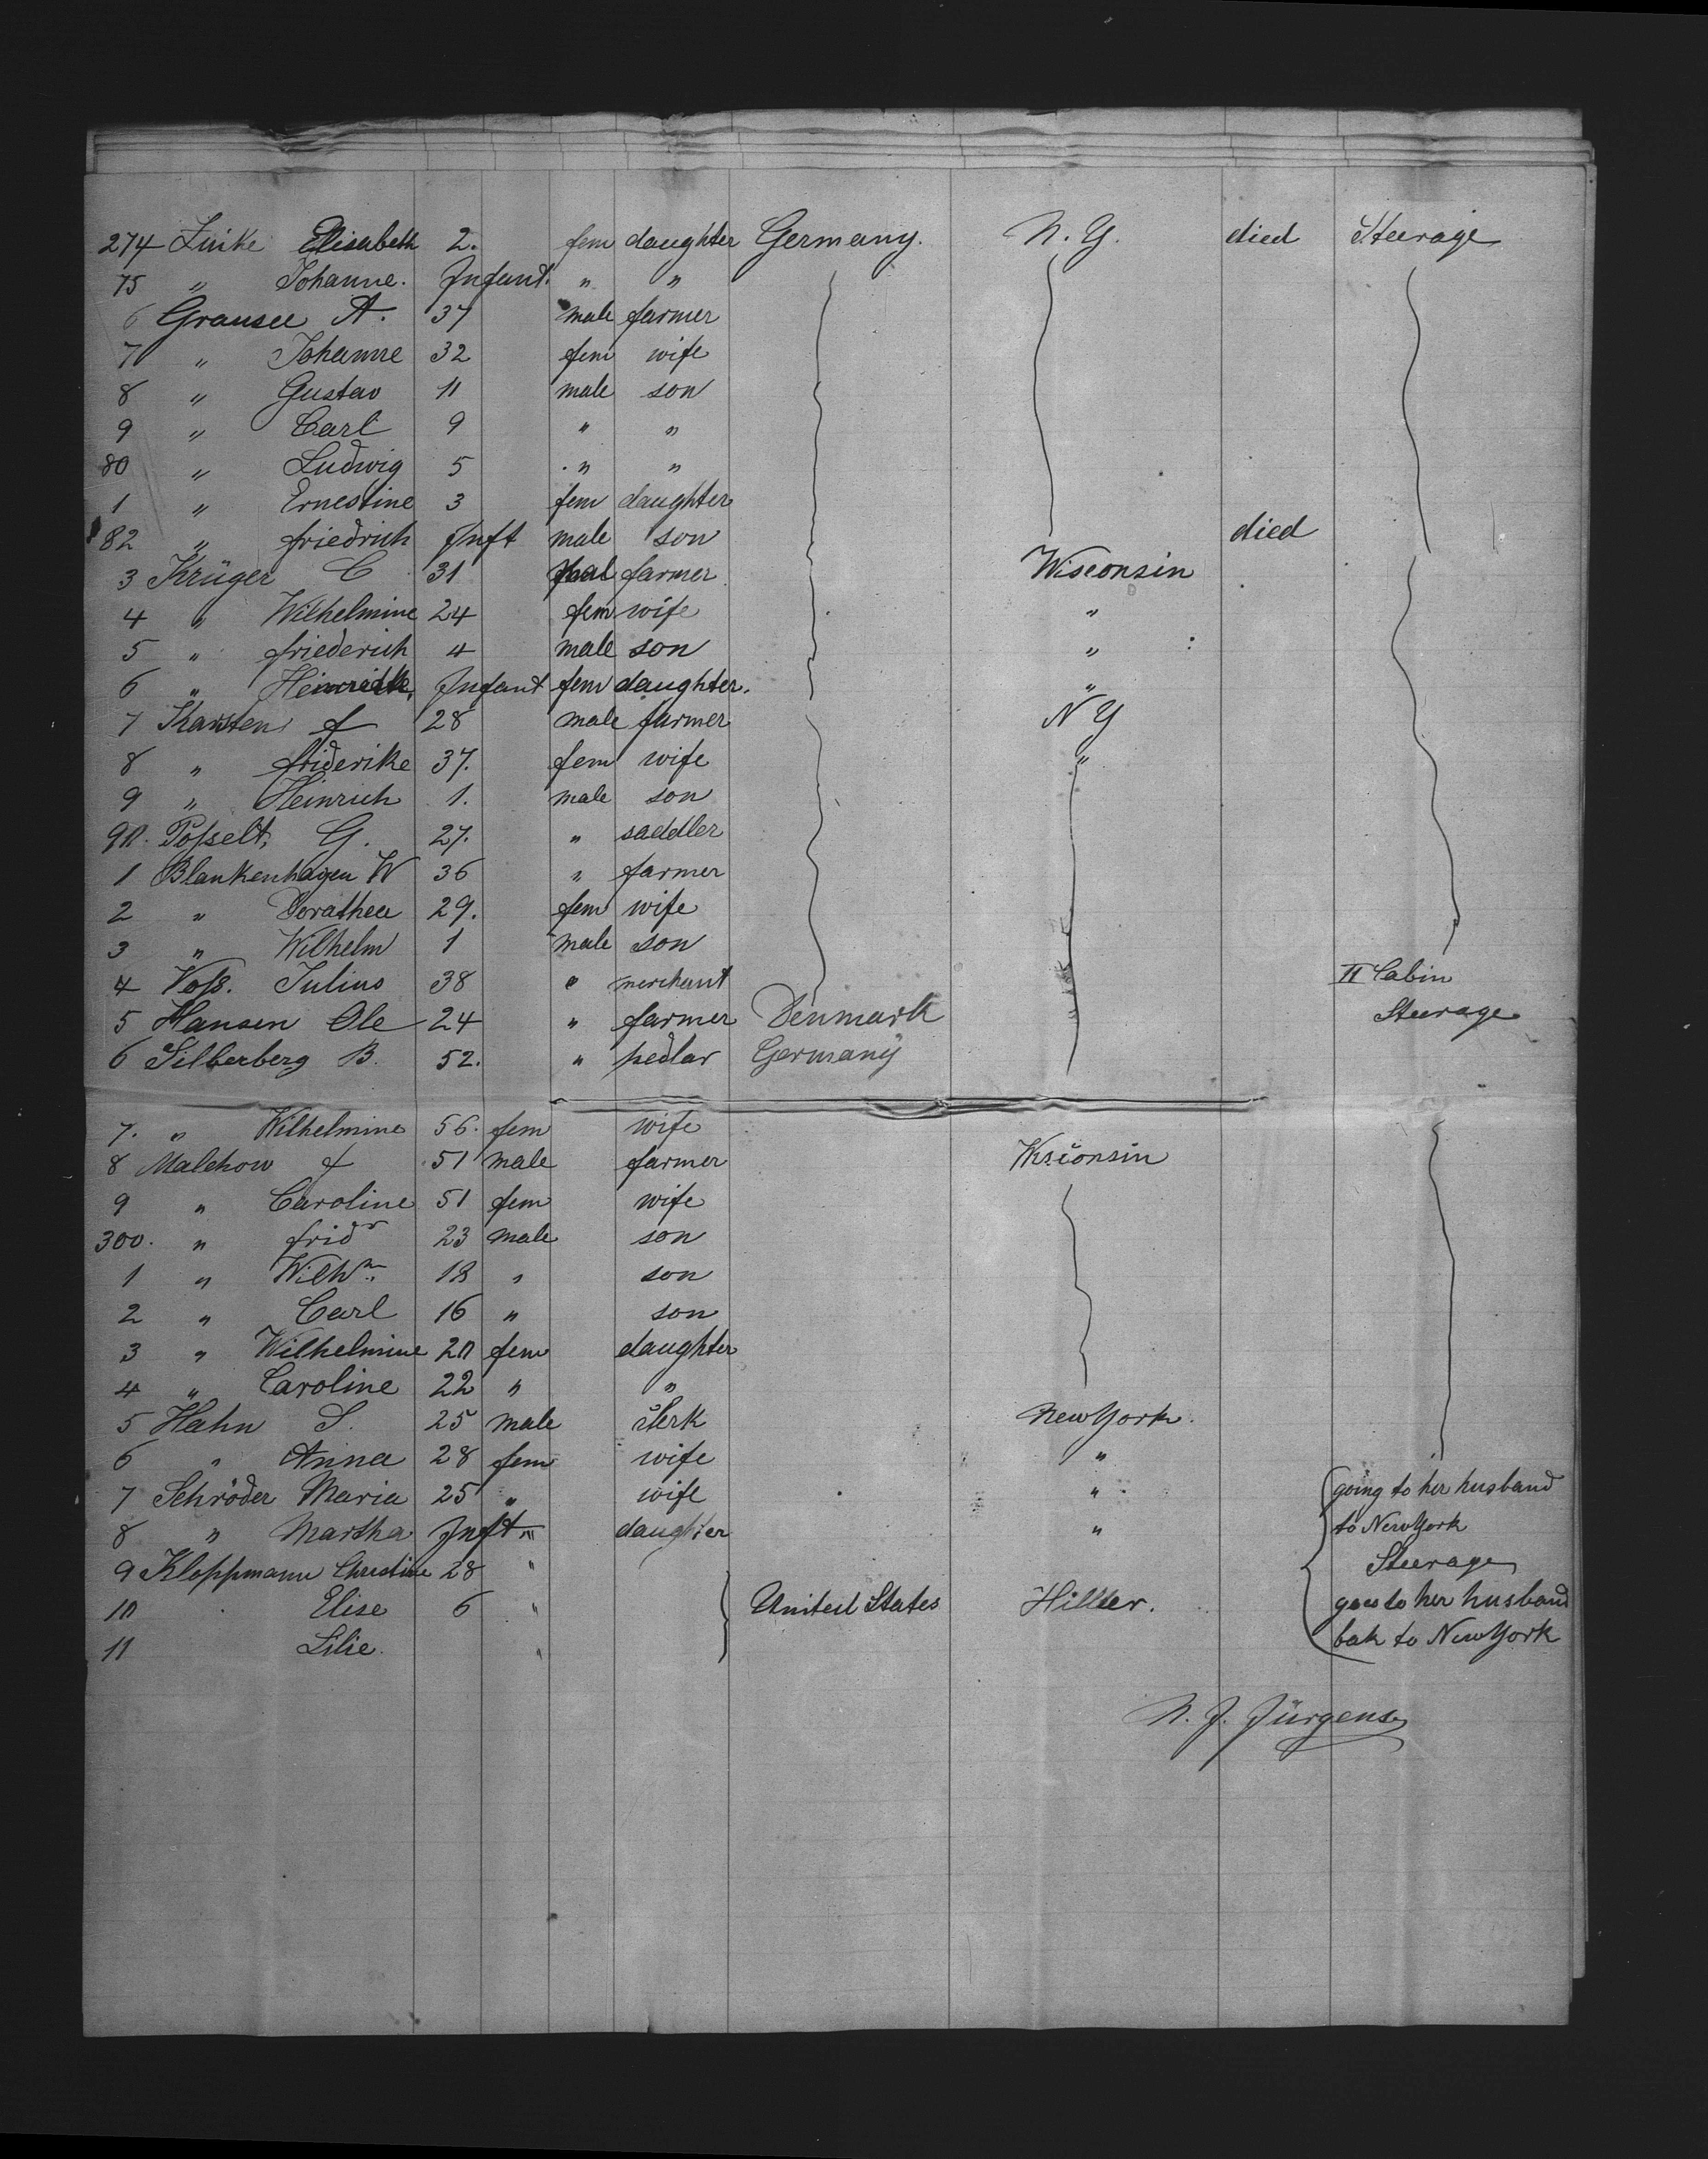 274 Linke Elisabeth 2. fem daughter Germany. N. Y. died Steerage
75 " Johanne. Infant. " "
6 Grausee A. 37 male farmer
7 " Johanne 32 fem wife
8 " Gustav 11 male son
9 " Carl 9 " "
80 " Ludwig 5 " "
1 " Ernestine 3 fem daughter
82 " friedrich Inft male son died
3 Krüger C 31 farmer Wisconsin
4 " Wilhelmine 24 fem wife "
5 " friederich 4 male son "
6 " Infant fem daughter. "
7 Karsten f 28 male farmer N Y
8 " friderike 37. fem wife "
9 " Heinrich 1. male son
90. Poſselt, G. 27. " saddler
1 Blankenhagen W 36 " farmer
2 " Dorathea 29. fem wife
3 " Wilhelm 1 male son
4 Voſs. Julius 38 " merchant II Cabin
5 Hansen Ole 24 " farmer Denmark Steerage
6 Silberberg B. 52. " pedlar Germany
7. " Wilhelmine 56. fem wife
8 Malchow f 51 male farmer Wisconsin
9 " Caroline 51 fem wife
300. " fridr 23 male son
1 " Wilhm 18 " son
2 " Carl 16 " son
3 " Wilhelmine 20 fem daughter
4 " Caroline 22 " "
5 Hahn S. 25 male clerk New York.
6 " Anna 28 fem wife " "
7 Schröder Maria 25 " wife " going to her husband
8 " Martha Inft " daughter " to New York
9 Kloppmann Christine 28 " Steerage
10 Elise 6 " United States Hiller. goes to her husband
11 Lilie. " bak to New York
N. J. Jürgens